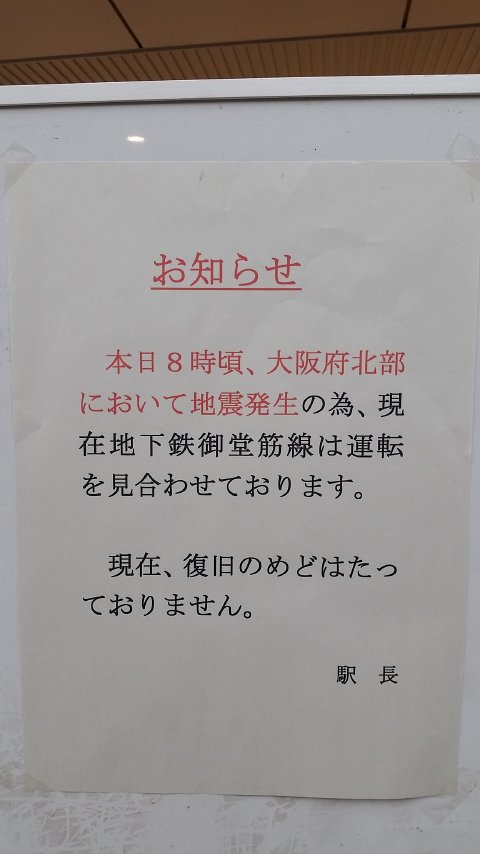 お知らせ
本日８時頃、大阪府北部
において地震発生の為、現
在地下鉄御堂筋線は運転
を見合わせております。
現在、復旧のめどはたっ
ておりません。
駅　長